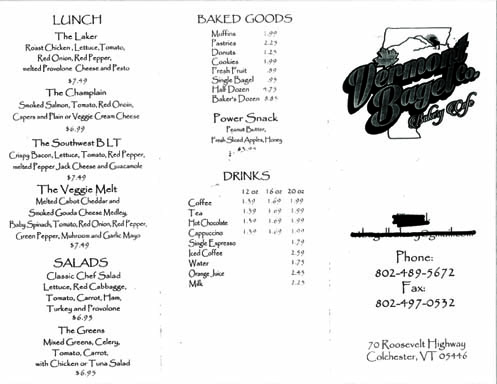 LUNCH
The Laker
Roast Chicken, Lettuce, Tomato,
Red Onion, Red Pepper,
melted Provolone Cheese and Pesto
$7.49
The Champlain
Smoked Salmon, Tomato, Red Onoin,
Capers and Plain or Veggie Cream Cheese
$6.99
The Southwest BLT
Crispy Bacon, Lettuce, Tomato, Red Pepper,
melted Pepper Jack Cheese and Guacamole
$7.49
The Veggie Melt
Melted Cabot Cheddar and
Smoked Gouda Cheese Medley,
Baby Spinach, Tomato, Red Onion, Red Pepper,
Green Pepper, Muhroom and Garlic Mayo
$7.49
SALADS
Classic Chef Salad
Lettuce, Red Cabbagge,
Tomato, Carrot, Ham,
Turkey and Provolone
$6.95
The Greens
Mixed Greens, Celery,
Tomato, Carrot,
with Chicken or Tuna Salad
$6.95
BAKED GOODS
Muffins 1.99
Pastries 2.25
Donuts 1.25
Cookies 1.99
Fresh Fruit .89
Single Bagel .95
Half Dozen 4.75
Baker's Dozen 8.85
Power Snack
Peanut Butter,
Fresh Sliced Apples, Honey
$3.99
DRINKS
12 oz 16 oz 20 oz
Coffee 1.39 1.69 1.99
Tea 1.39 1.69 1.99
Hot Chocolate 1.39 1.69 1.99
Cappuccino 1.39 1.69 1.99
Single Espresso 1.79
Iced Coffee 2.59
Water 1.75
Orange Juice 2.45
Milk 2.25
Vermont
Bagel Co.
Bakery Cafe
Phone:
802-489-5672
Fax:
802-497-0532
70 Roosevelt Highway
Colchester, VT 05446